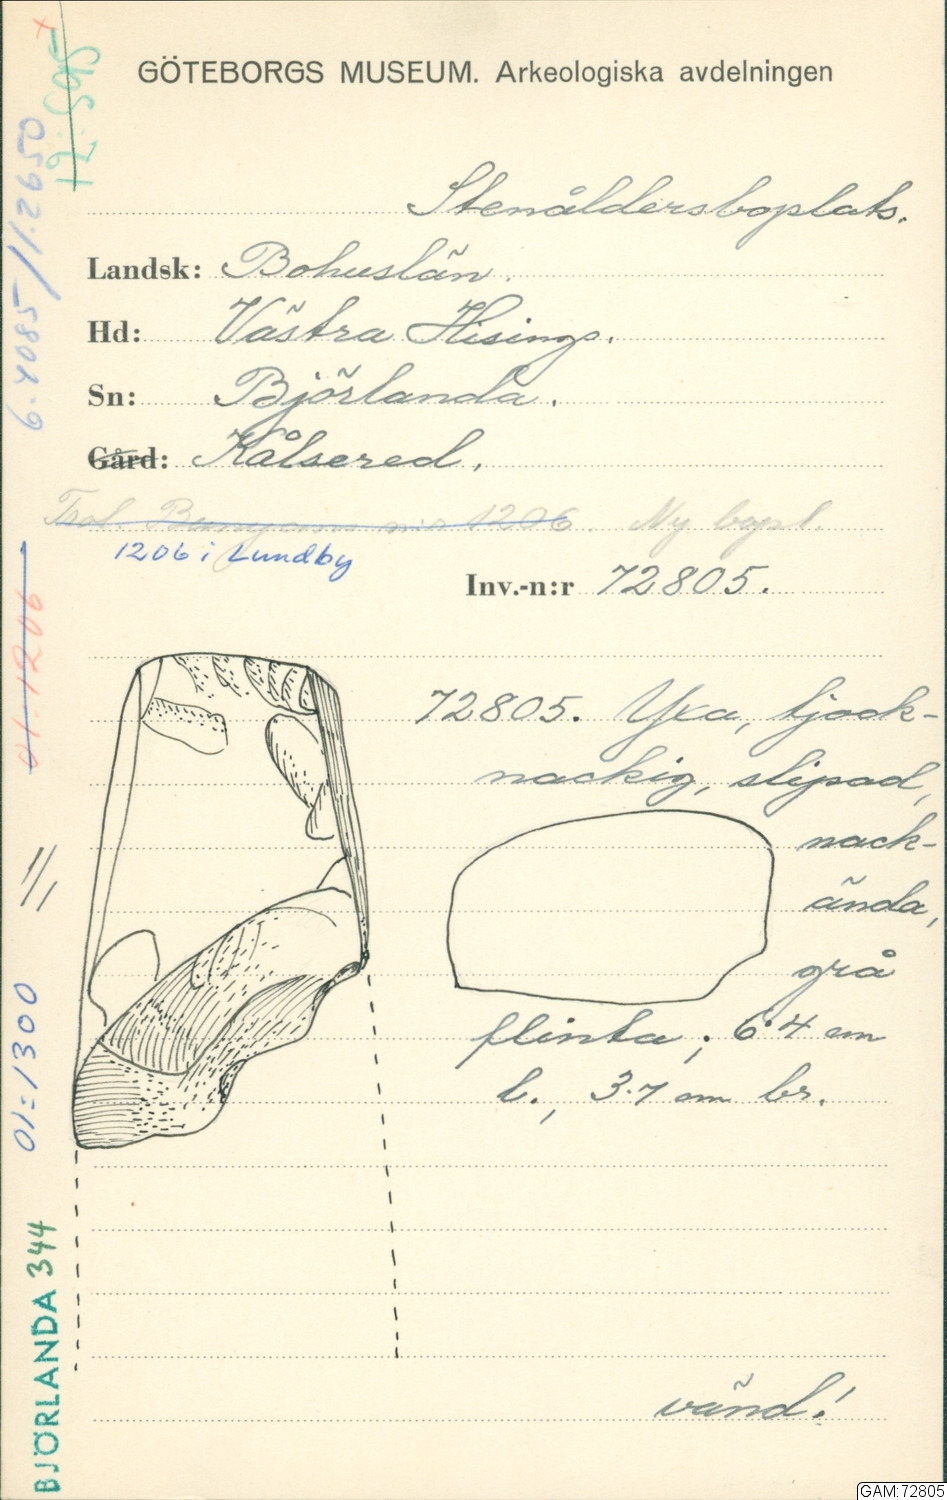 GÖTEBORGS MUSEUM. Arkeologiska avdelningen
Stenåldersboplats.
Landsk: Bohuslän.
Hd: Västra Hisings.
Sn: Björlanda.
Gård: Kålsered.
1206. Ny bopl.
1206 i Lundby
Inv.-n:r 72805.
72805. Yxa, tjock-
nackig, slipad,
nack-
ända,
grå
flinta; 6·4 cm
l., 3·7 cm br.
vänd!
12:595
6.4085/11.2650
01-1206
1/1
01=1300
BJÖRLANDA 344
GAM:72805